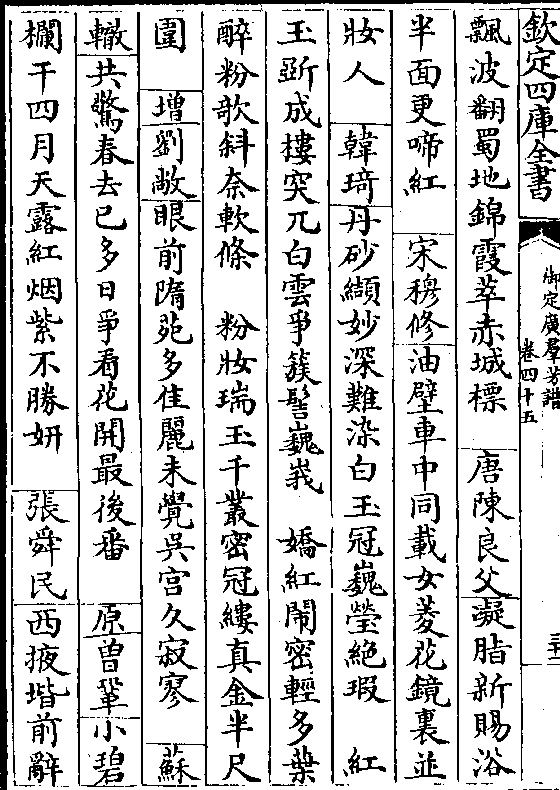 欽定四庫全書
御定廣羣芳譜
卷四十五
三十
飄波翻蜀地錦霞萃赤城標 唐陳良父凝脂新賜浴
半面更啼紅 宋穆修油壁車中同載女菱花鏡裏並
妝人 韓琦丹砂纈妙深難染白玉冠巍瑩絕瑕 紅
玉斲成摟突兀白雲爭簇髻巍峩 嬌紅鬧密輕多葉
醉粉歌斜奈軟條 粉妝瑞玉千叢密冠縷真金半尺
圍 增劉敞眼前隋苑多佳麗未覺吳宫久寂寥 蘇
轍共驚春去已多日爭看花開最後番 原曽鞏小碧
欄干四月天露紅烟紫不勝妍 張舜民西掖堦前辭